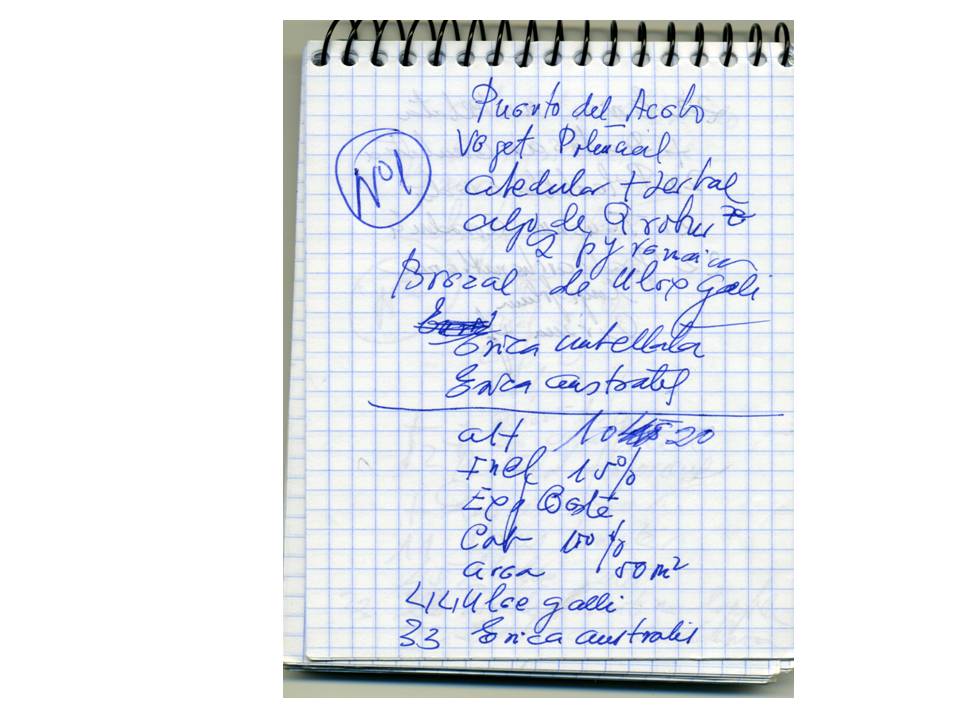 Puerto del Acebo
Nº1
Veget Potencial
abedular + serbal
algo de Q robur
Q pyrenaica
Brezal de Ulex galli
Erica umbellata
Erica australis
alt 1020
Incl 15%
Exp Oeste
Cob 100%
area 50 m²
44 Ulex galli
33 Erica australis